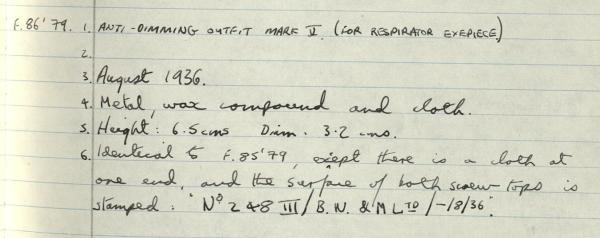 F.86'79. 1. ANTI-DIMMING OUTFIT MARK V. (FOR RESPIRATOR EYEPIECE.)
2.
3. August 1936.
4. Metal, wax compound and cloth.
5. Height: 6.5 cms Diam. 3.2 cms.
6. Identical to F.85'79, exept there is a cloth at
one end, and the surface of both screw tops is
stamped: "Nº 248 III / B.W. & M LTD / -/8/36".